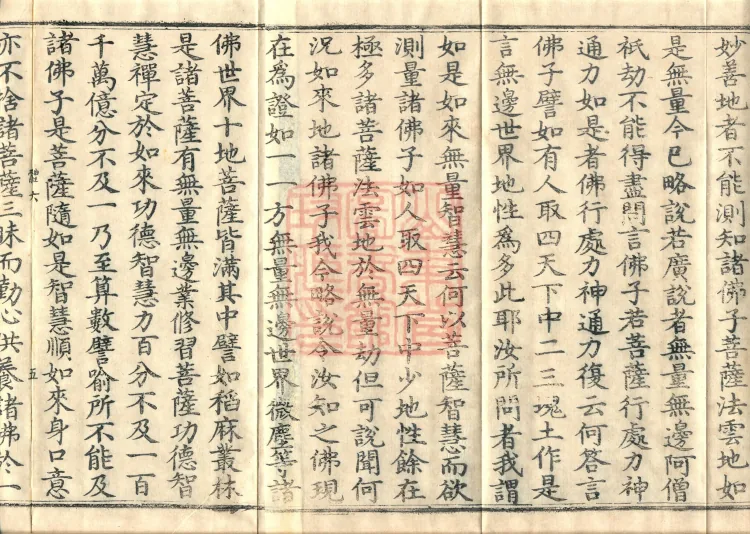 妙善地者不能測知諸佛子菩薩法雲地如
是無量今已略說若廣說者無量無邊阿僧
祇劫不能得盡問言佛子若菩薩行處力神
通力如是者佛行處力神通力復云何答言
佛子譬如有人取四天下中二三塊土作是
言無邊世界地性為多此耶汝所問者我謂
如是如來無量智慧云何以菩薩智慧而欲
測量諸佛子如人取四天下中少地性餘在
極多諸菩薩法雲地於無量劫但可說聞何
況如來地諸佛子我今略說令汝知之佛現
在為證如一一方無量無邊世界微塵等諸
佛世界十地菩薩皆滿其中譬如稻麻叢林
是諸菩薩有無量無邊業修習菩薩功德智
慧禪定於如來功德智慧力百分不及一百
千萬億分不及一乃至算數譬喻所不能及
諸佛子是菩薩隨如是智慧順如來身口意
六
五
亦不捨諸菩薩三昧而勤心供養諸佛於一